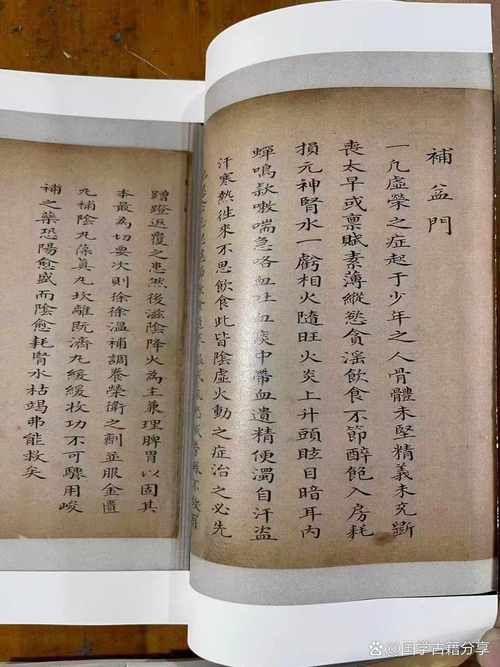 補益門
一凡虛榮之症起于少年之人骨體未堅精義未充斵
喪太早或稟賦素薄縱慾貪淫飲食不節醉飽入房耗
損元神腎水一虧相火隨旺火炎上升頭眩目暗耳內
蟬鳴欬嗽喘急咯血吐血痰中帶血遺精便濁自汗盜
汗寒熱往來不思飲食此皆陰虛火動之症治之必先
蹭蹬返覆之患然後滋陰降火為主兼理脾胃以固其
本最為切要次則徐徐溫補調養榮衛之劑並服金匱
丸補陰丸葆真丸坎離既濟丸緩緩救功不可驟用峻
補之藥恐陽愈盛而陰愈耗腎水枯竭弗能救矣
@国学古籍分享